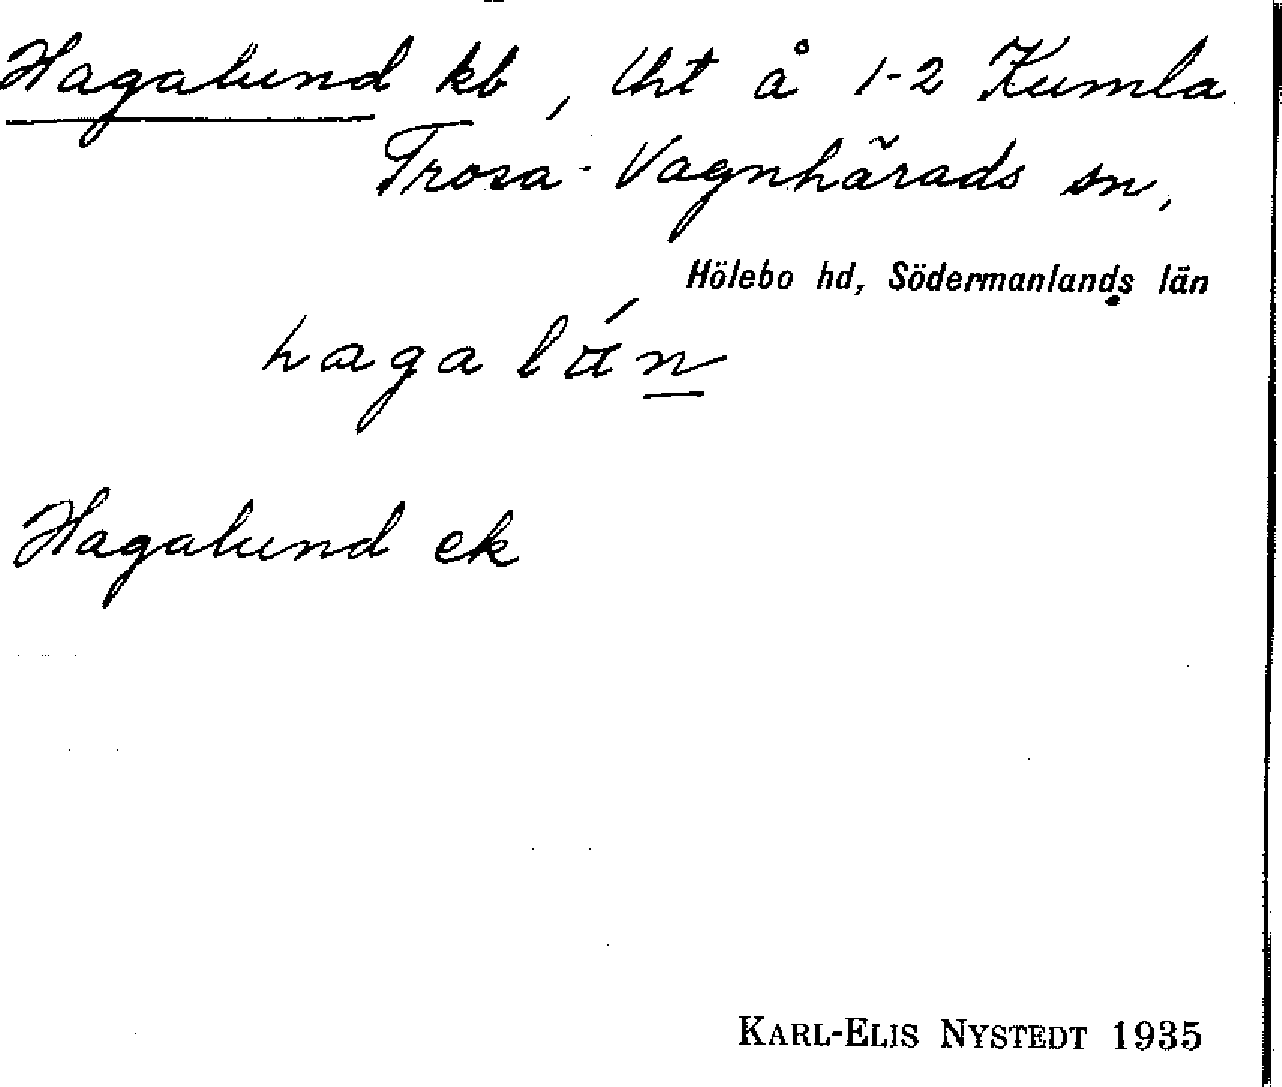 Hagalund kb, lht å 1-2 Kumla
Trosa-Vagnhärads sn,
Hölebo hd, Södermanlands län
Hagalund ek
KARL-ELIS NYSTEDT 1935